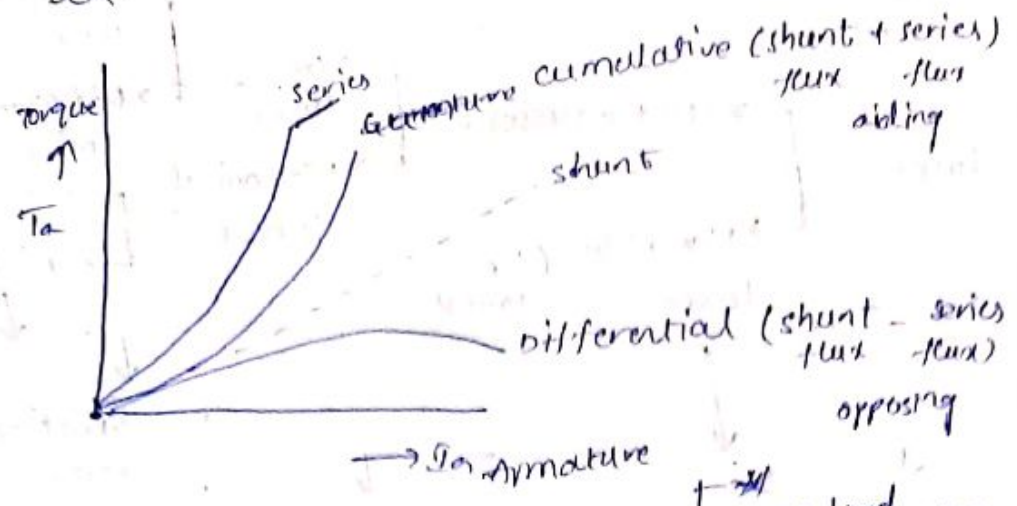 series
cumulative (shunt + series)
flux flux
aibling
Torque
shunt
Ta
Differential (shunt - series
flux flux)
opposing
→ Ia Armature